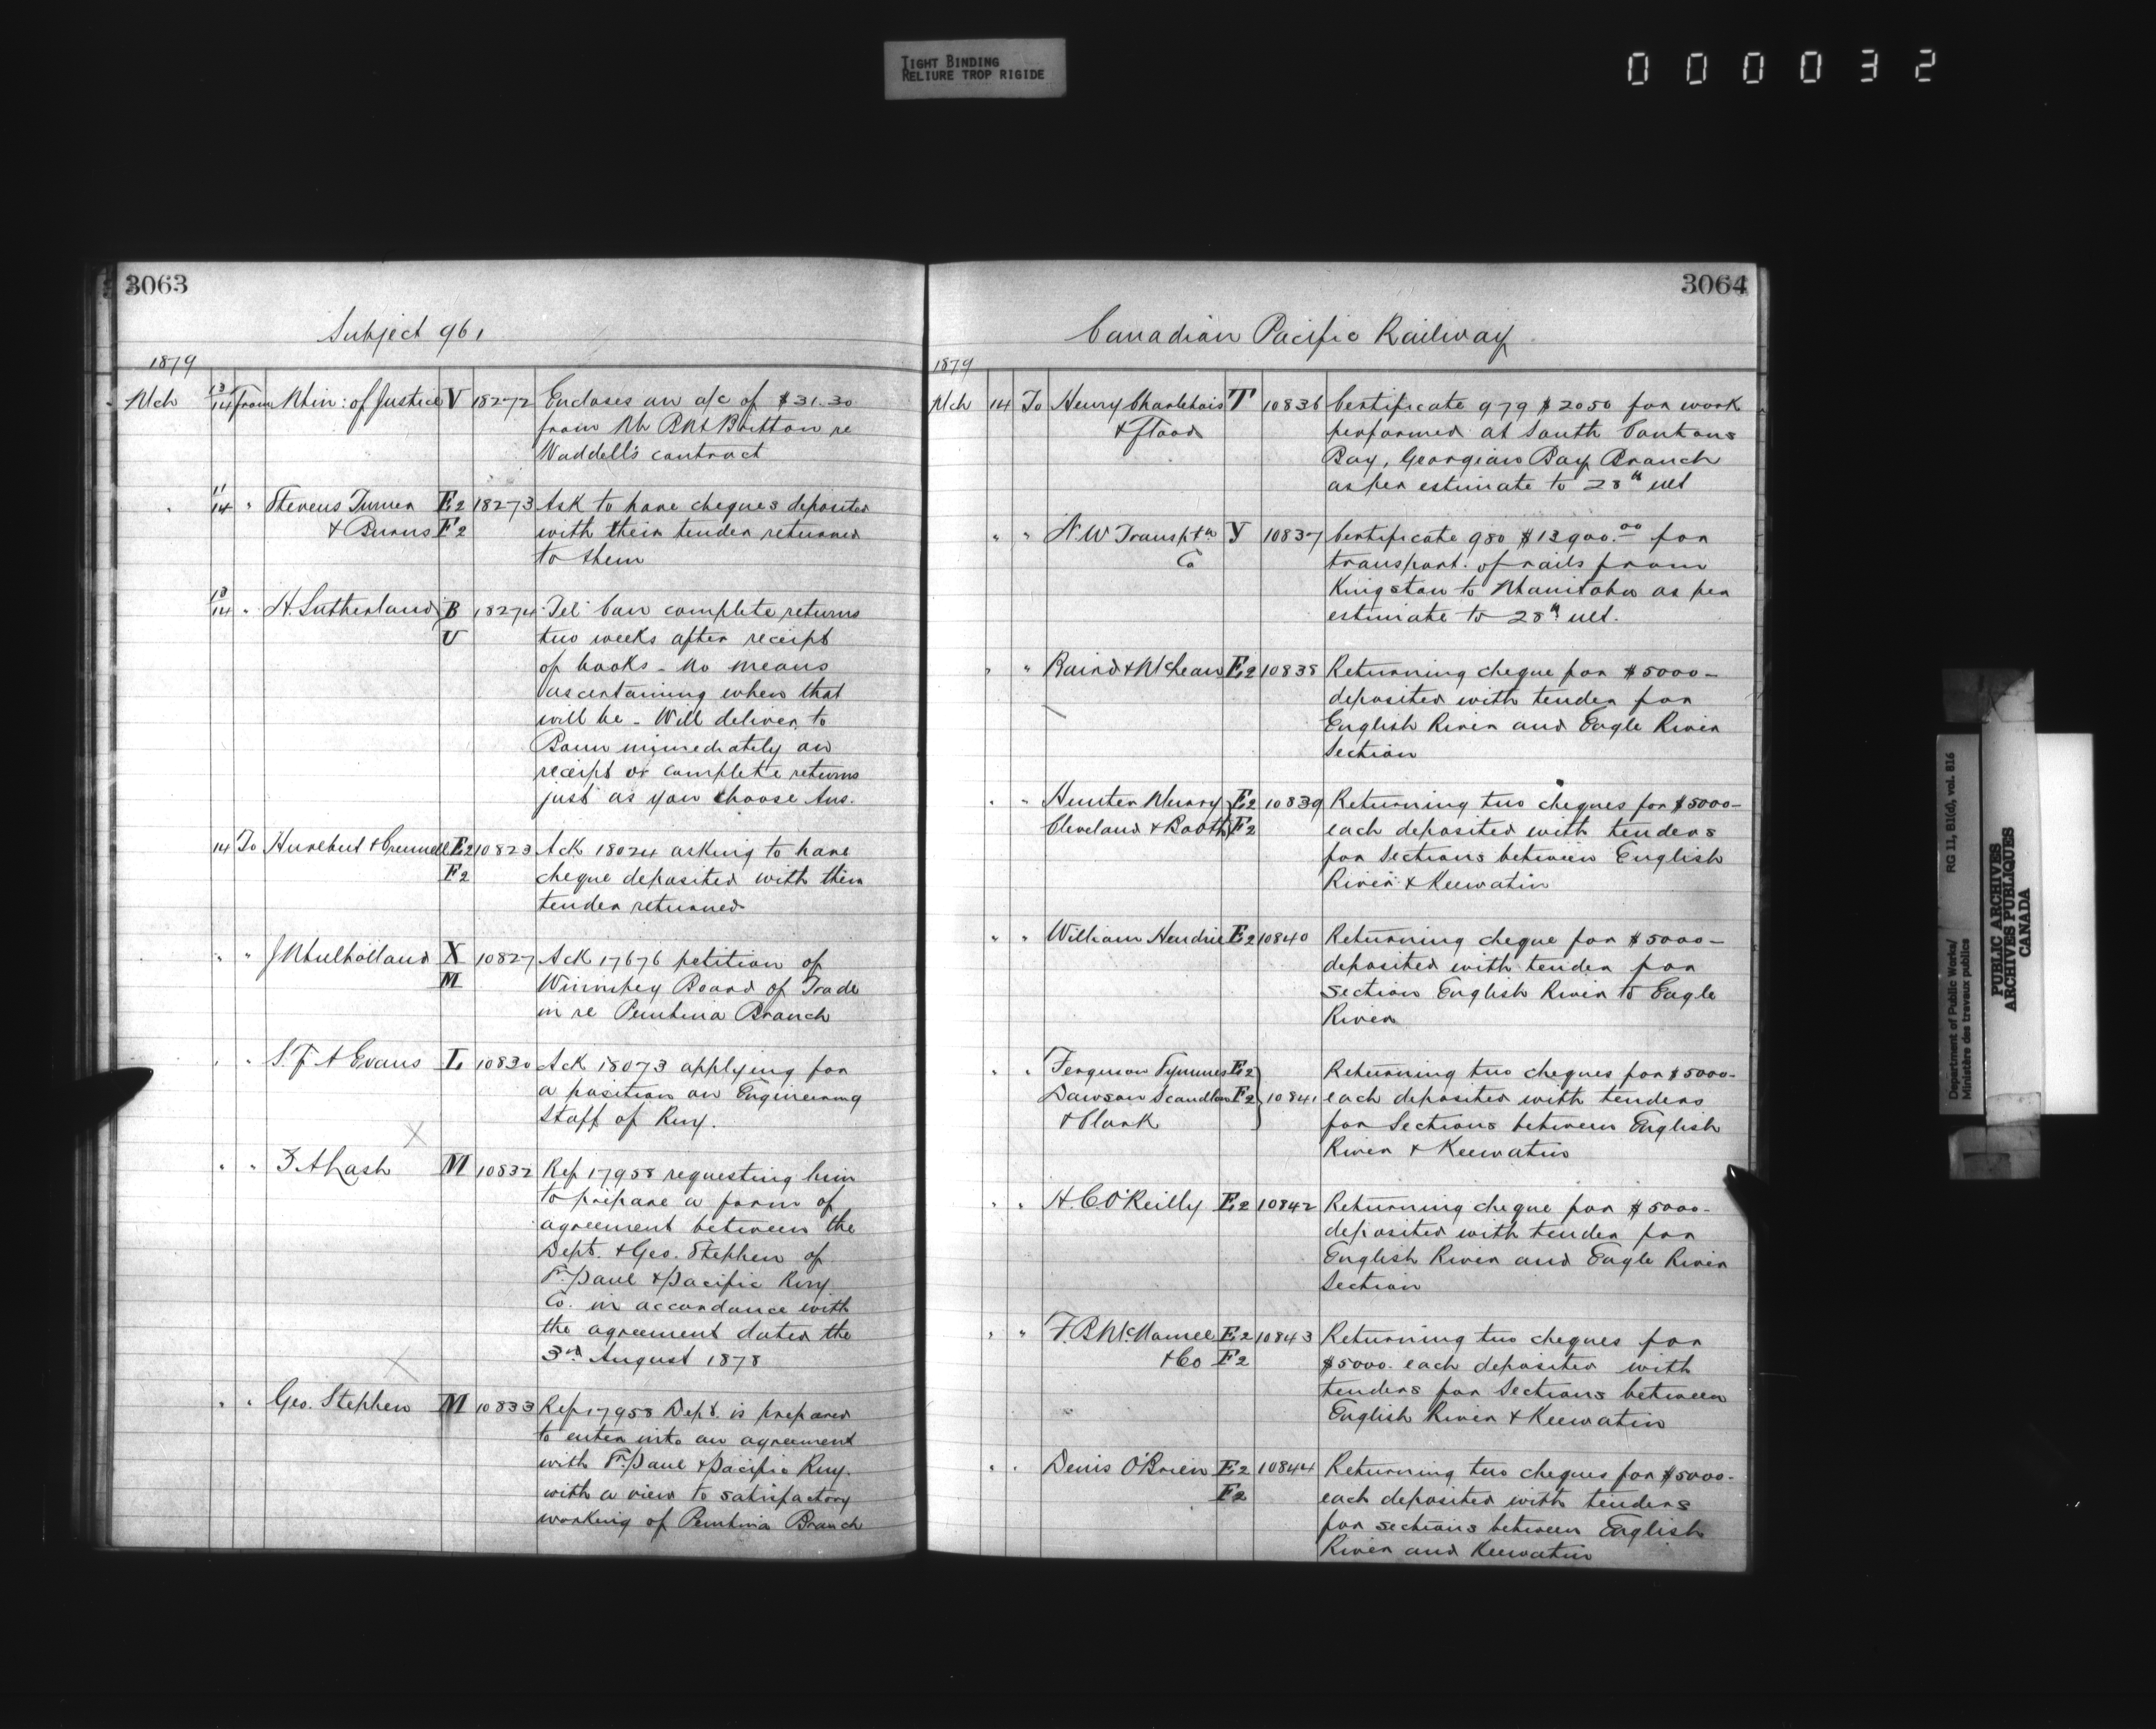 TIGHT BINDING
RELIURE TROP RIGIDE
000032
3063
Subject 961
1879
Mch 13/14 From Min: of Justice V 18272 Encloses an a/c of $31.30
from Mr B M Britton re
Waddell's contract
" 11/14 " Stevens Turner E2 18273 Ask to have cheques deposited
& Burns F2 with their tender returned
to them
13/14 " H. Sutherland B 18274 Tel Can complete returns
U two weeks after receipt
of books - no means
ascertaining when that
will be - Will deliver to
immediately on
receipt or complete returns
just as you choose Ans.
14 To Hurlbut & E2 10823 Ack 18024 asking to have
F2 cheque deposited with their
tender returned
" " J Mulholland X 10827 Ack 17676 petition of
M Winnipeg Board of Trade
in re Pembina Branch
" " S. F. A Evans L 10830 Ack 18073 applying for
a position on Engineering
Staff of Rwy.
" " Z A Lash M 10832 Rep 17958 requesting him
to prepare a form of
agreement between the
Dept. & Geo. Stephen of
St. Paul & Pacific Rwy
Co. in accordance with
the agreement dated the
3rd August 1878
" " Geo. Stephen M 10833 Rep 17958 Dept. is prepared
to enter into an agreement
with St. Paul & Pacific Rwy.
with a view to satisfactory
working of Pembina Branch
3064
Canadian Pacific Railway
1879
Mch 14 To Henry Charlebois T 10836 Certificate 979 $2050 for work
& Flood performed at South
Bay, Georgian Bay Branch
as per estimate to 28th ult
" " N. W Transptn Y 10837 Certificate 980 $13900.00 for
Co transport. of rails from
Kingston to Manitoba as per
estimate to 28th ult.
" " Baird & McLean E2 10838 Returning cheque for $5000-
deposited with tender for
English River and Eagle River
Section
" " Hunter Murray E2 10839 Returning two cheques for $5000-
Cleveland & Booth F2 each deposited with tenders
for sections between English
River & Keewatin
" " William Hendrie E2 10840 Returning cheque for $5000-
deposited with tender for
section English River to Eagle
River
" " Ferguson Symmes E2 Returning two cheques for $5000-
Dawson Scandlon F2 10841 each deposited with tenders
& Clark for Sections between English
River & Keewatin
" " H. C. O'Reilly E2 10842 Returning cheque for $5000-
deposited with tender for
English River and Eagle River
Section
" " F. B McNamee E2 10843 Returning two cheques for
& Co F2 $5000. each deposited with
tenders for Sections between
English River & Keewatin
" " Denis O'Brien E2 10844 Returning two cheques for $5000-
F2 each deposited with tenders
for sections between English
River and Keewatin
Department of Public Works/ RG 11, B1(d), vol. 816
Ministère des travaux publics
PUBLIC ARCHIVES
ARCHIVES PUBLIQUES
CANADA